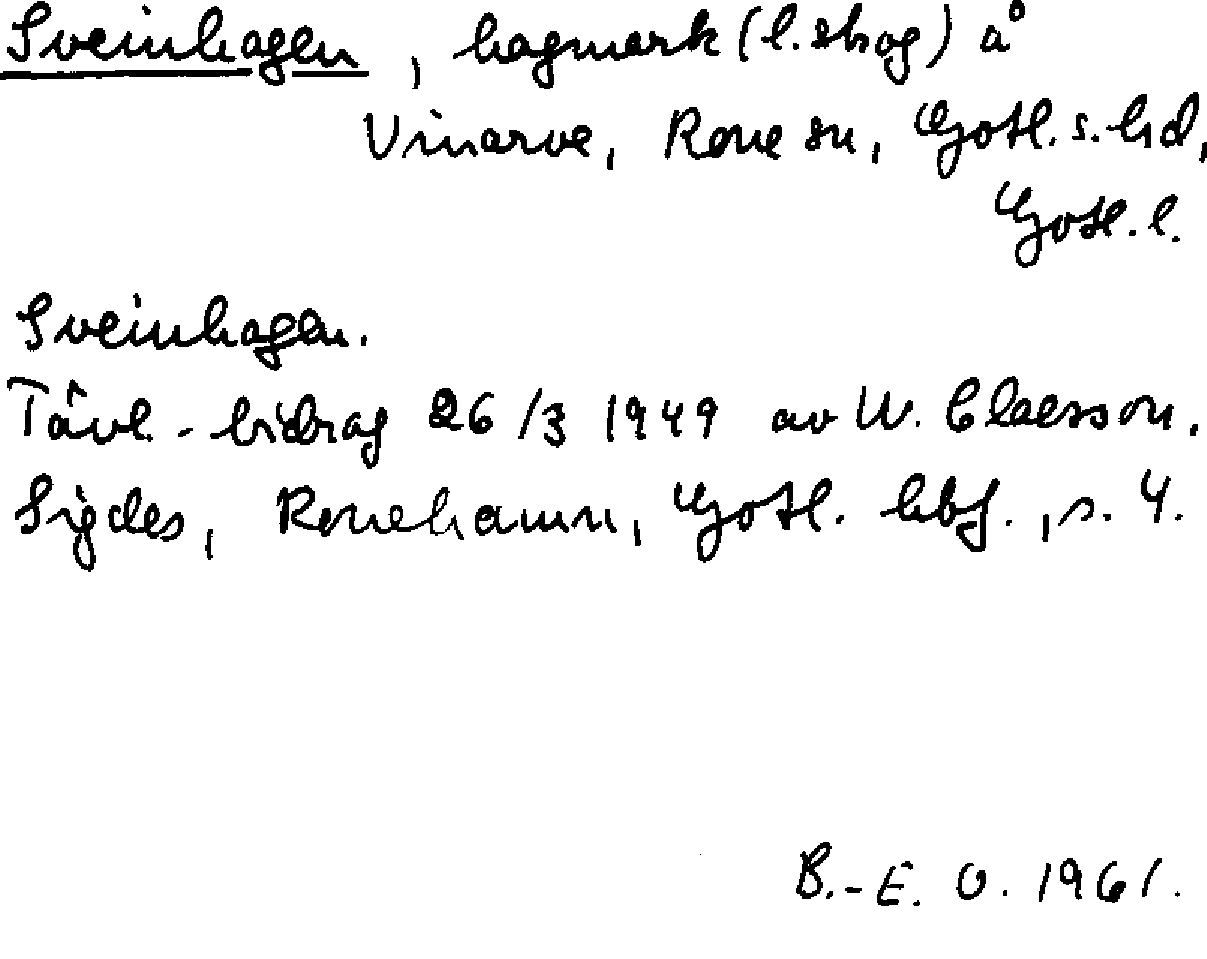 Sveinhagen, hagmark (l. skog) å
Vinarve, Rone sn, Gotl. s. hd,
Gotl. l.
Sveinhagen.
Tävl.-bidrag 26/3 1949 av W. Claesson.
Sigdes, Ronehamn, Gotl. hbf., s. 4.
B.-E. O. 1961.